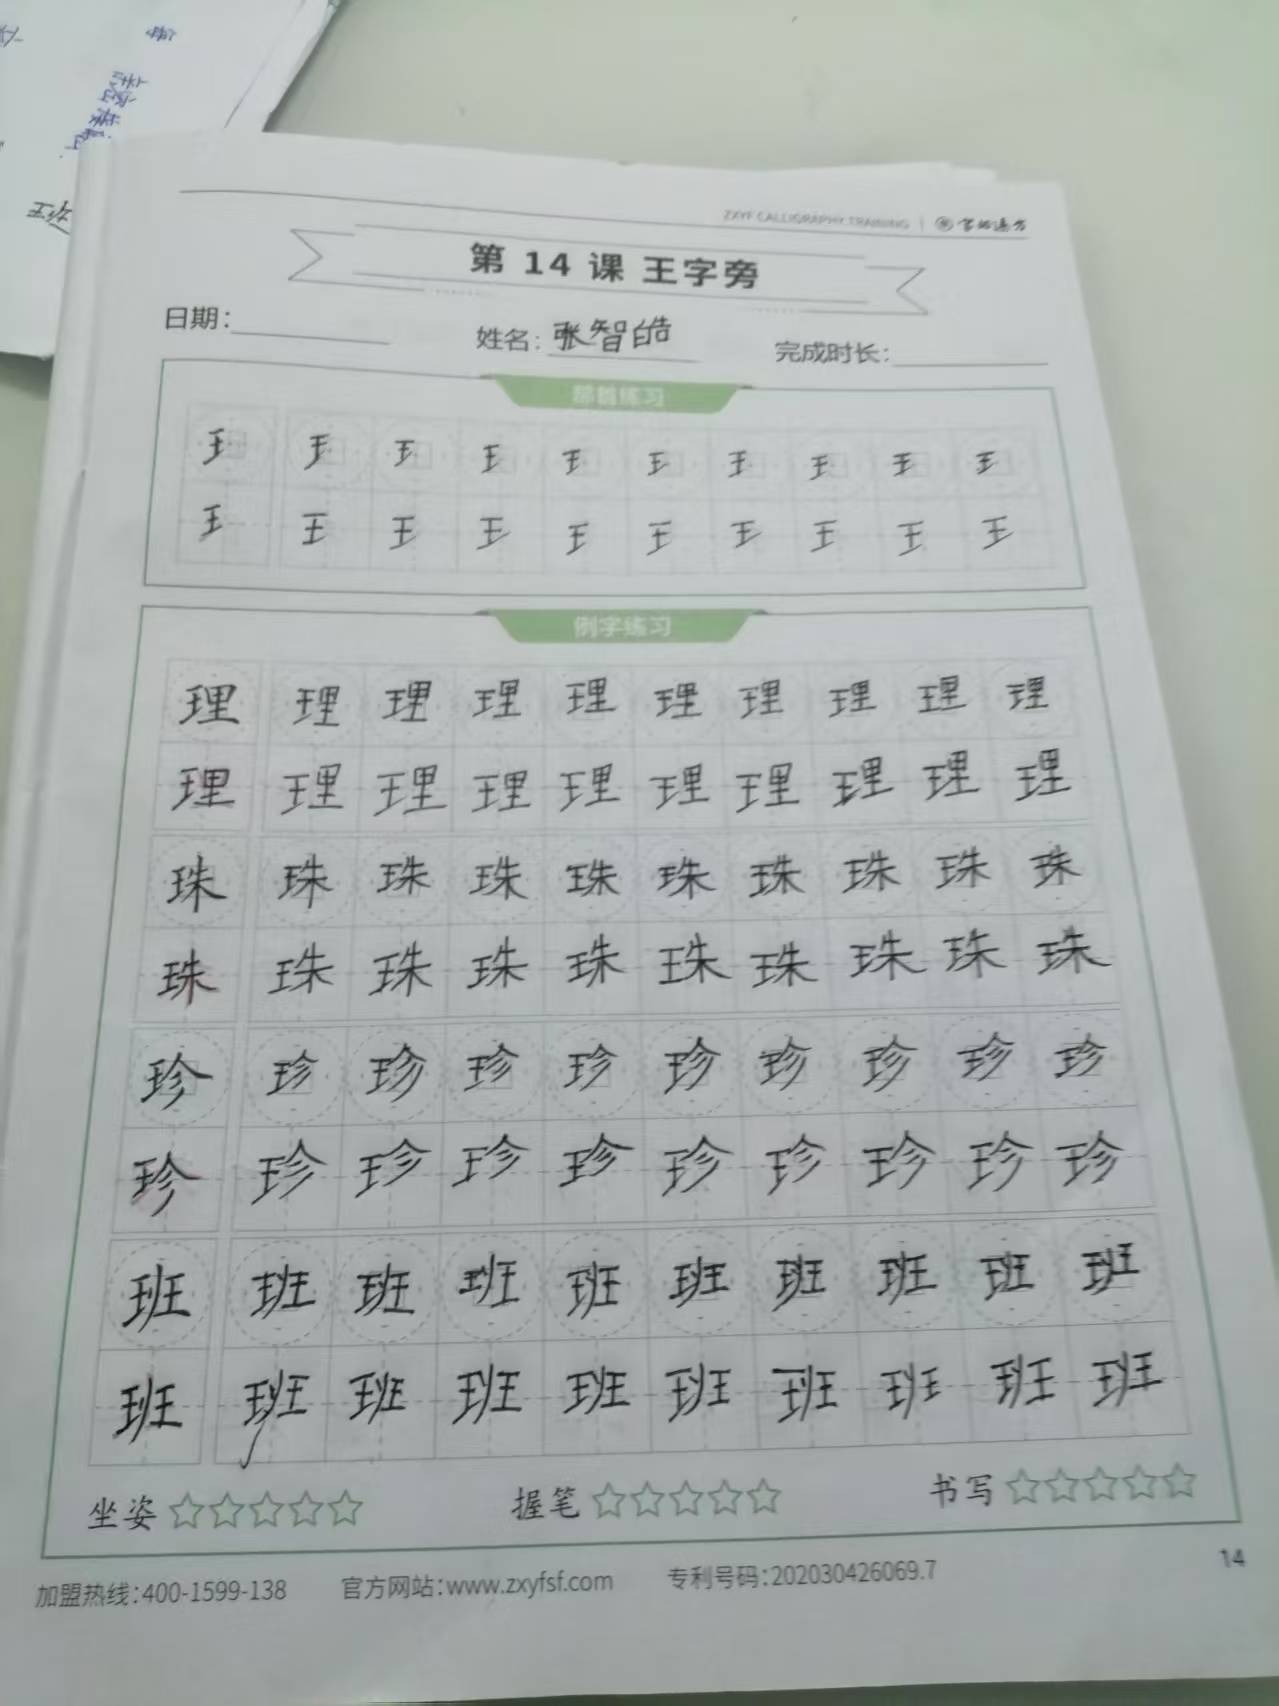 ZXYF CALLIGRAPHY TRAINING
第 14 课 王字旁
日期:
姓名: 张智皓
完成时长:
部首练习
王 王 王 王 王 王 王 王 王 王
王 王 王 王 王 王 王 王 王 王
例字练习
理 理 理 理 理 理 理 理 理 理
理 理 理 理 理 理 理 理 理 理
珠 珠 珠 珠 珠 珠 珠 珠 珠 珠
珠 珠 珠 珠 珠 珠 珠 珠 珠 珠
珍 珍 珍 珍 珍 珍 珍 珍 珍 珍
珍 珍 珍 珍 珍 珍 珍 珍 珍 珍
班 班 班 班 班 班 班 班 班 班
班 班 班 班 班 班 班 班 班 班
坐姿 握笔 书写
加盟热线:400-1599-138 官方网站:www.zxyfsf.com 专利号码:202030426069.7
14